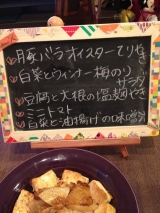 豚バラオイスターてりやき
白菜とウィンナー梅のり
サラダ
豆腐と大根の塩麹やき
ミニトマト
白菜と油揚げの味噌汁